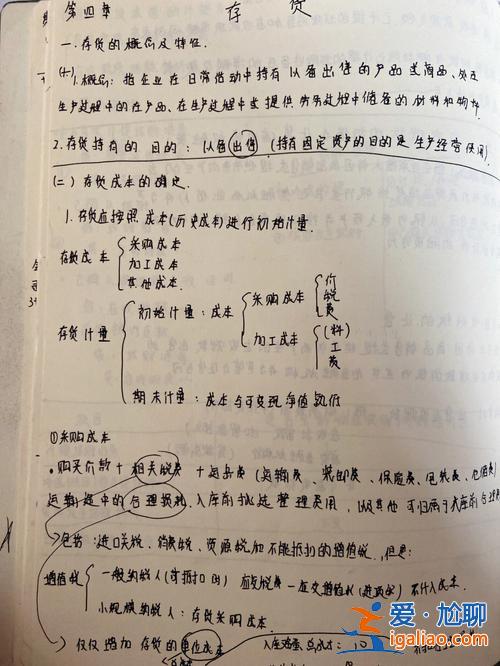 第四章 存货
一.存货的概念及特征.
(一) 1.概念: 指企业在日常活动中持有以备出售的产品或商品、处在
生产过程中的在产品、在生产过程中或提供劳务过程中储备的材料和物料
2.存货持有的目的: 以备出售 (持有固定资产的目的是生产经营使用)
(二) 存货成本的确定.
1.存货应按照成本(历史成本)进行初始计量.
存货成本
采购成本
加工成本
其他成本
存货计量
初始计量: 成本
采购成本
价
税
费
加工成本
(料)
工
费
期末计量: 成本与可变现净值孰低
①采购成本
•购买价款+相关税费+运杂费(运输费、装卸费、保险费、包装费、仓储费)
运输途中的合理损耗、入库前挑选整理费用,以及其他可归属于
包括: 进口关税、消费税、资源税和不能抵扣的增值税. 但是:
增值税
一般纳税人(可抵扣的) 应交税费—应交增值税(进项税) 不计入成本.
小规模纳税人: 存货采购成本.
仅仅增加存货的单位成本
入库 总成本: 10
爱·尬聊
ingaliao.com